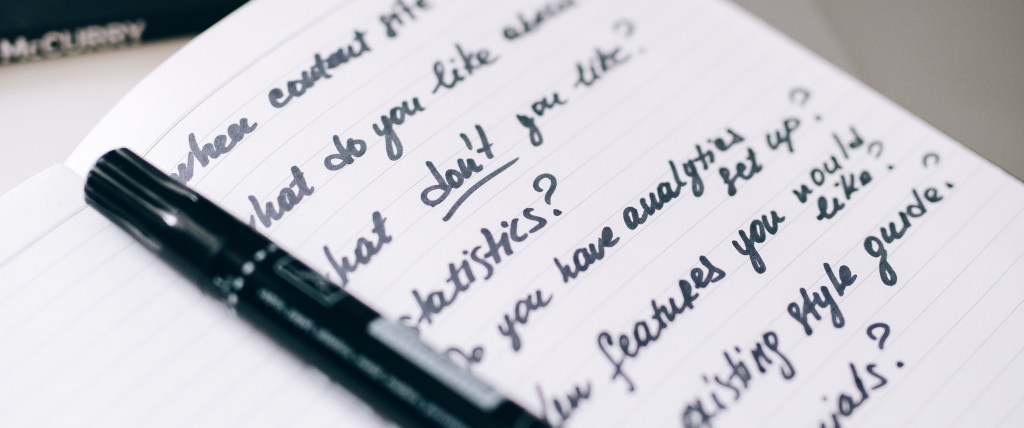 McCURRY
when content site
what do you like about
what don't you like?
statistics?
Do you have analytics
set up?
New features you would
like?
existing style guide?